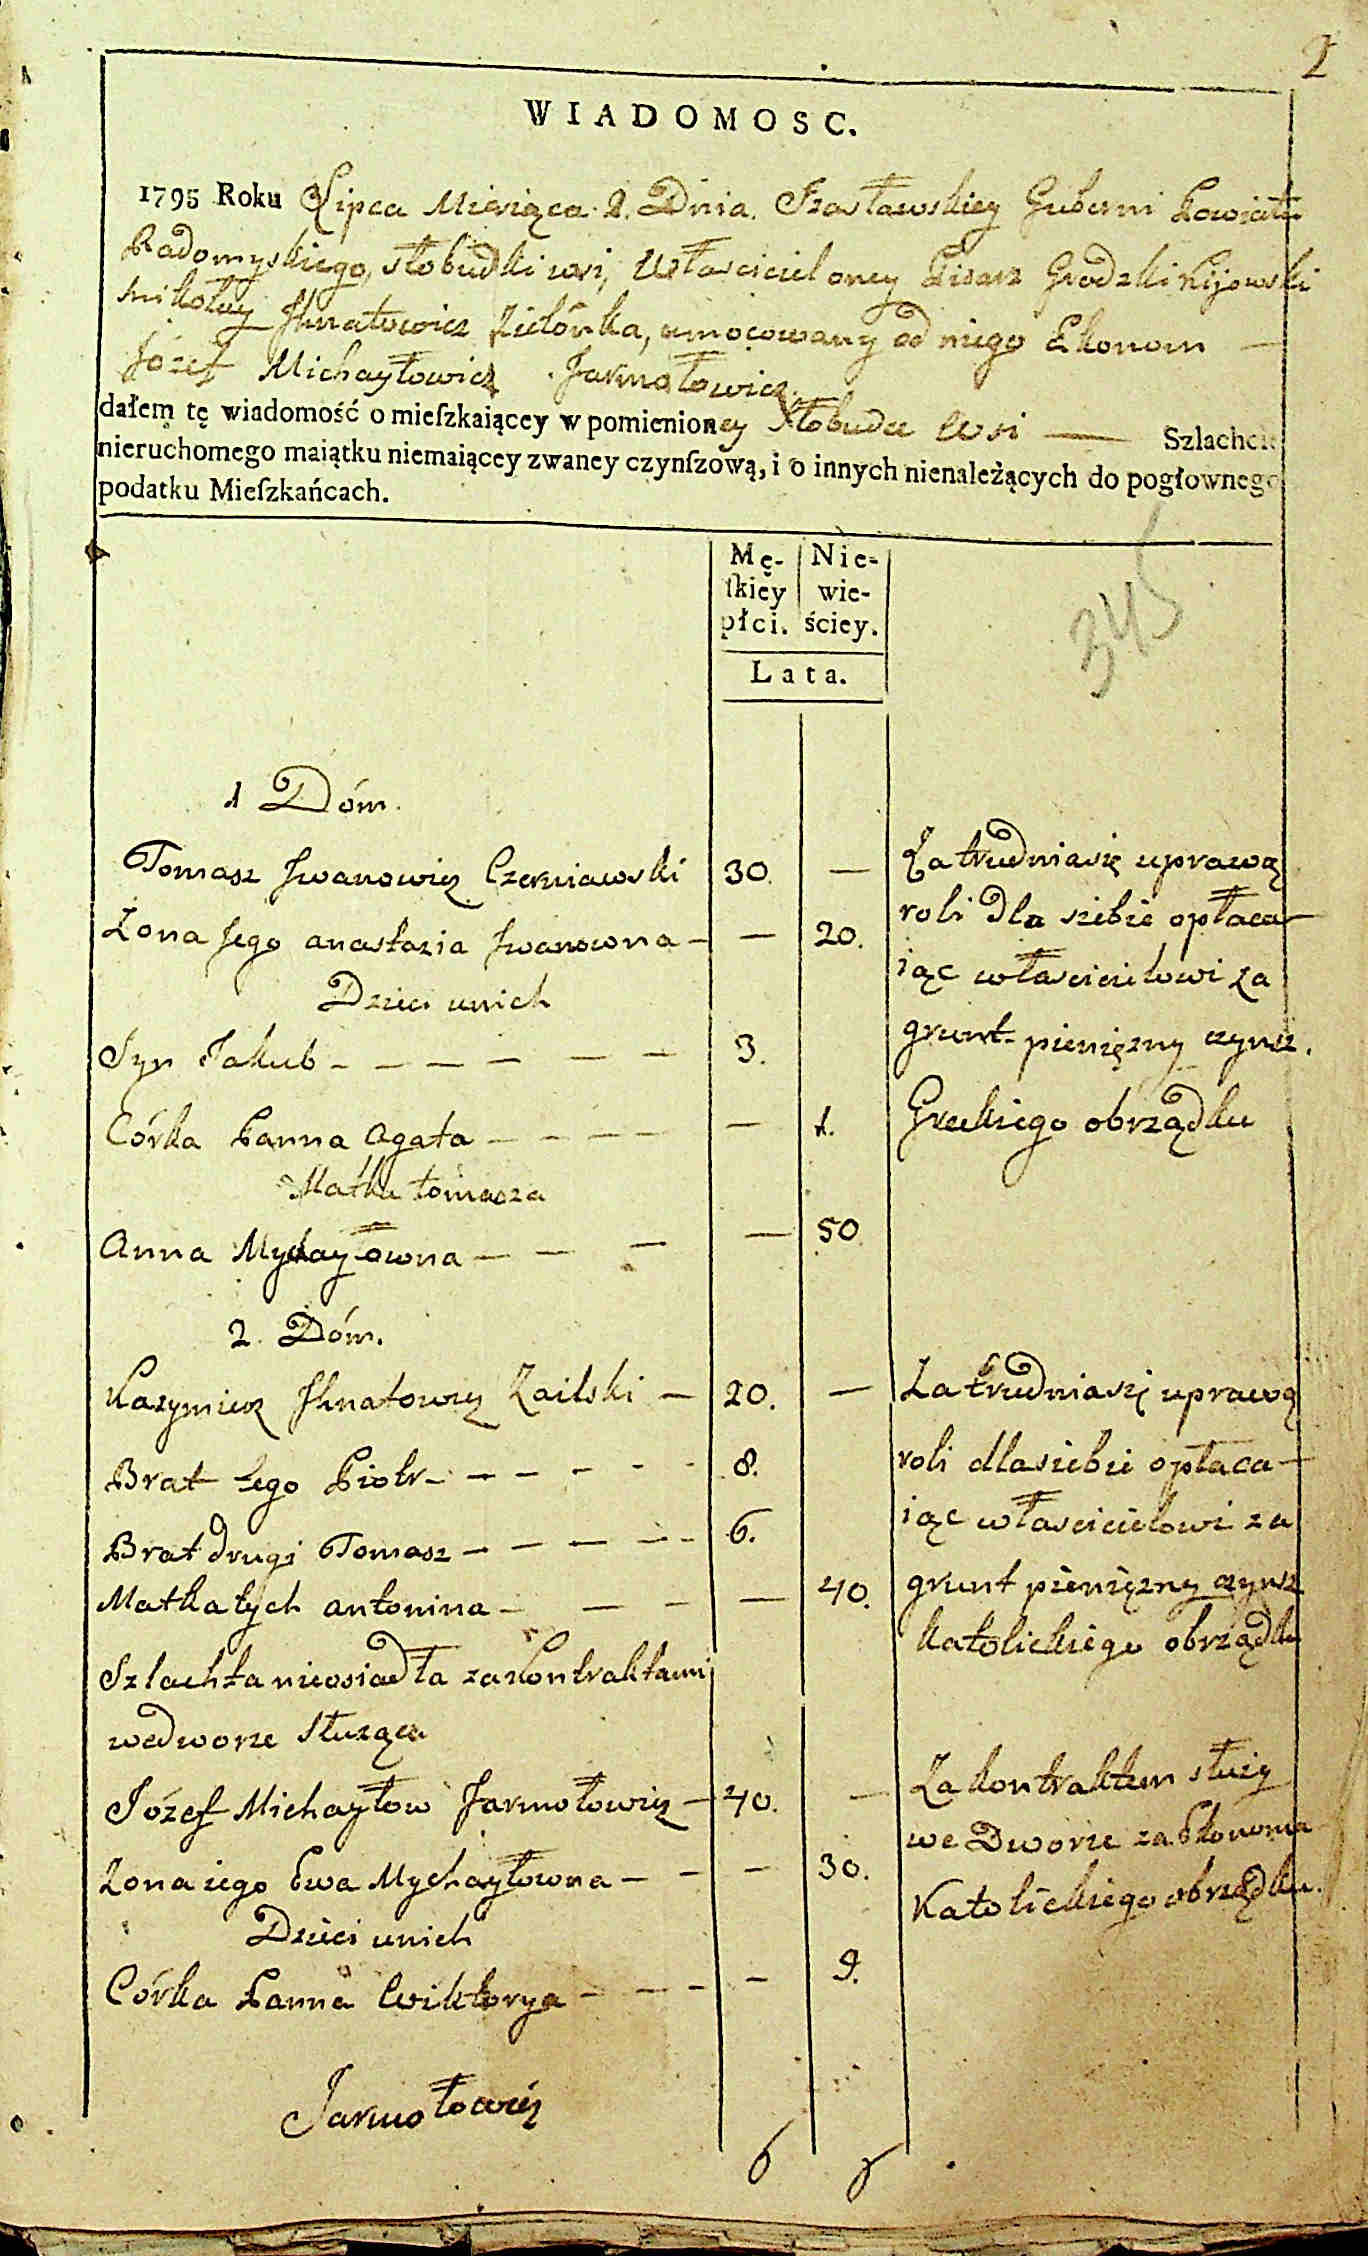 2
WIADOMOSC.
1795 Roku Lipca Miesiąca 2. Dnia. Izasławskiey Guberni Powiatu
Radomyskiego, słobudki wsi, Właściciel oney Pisarz Grodzki Kijowski
Mikołay Ihnatowicz Zielónka, umocowany od niego Ekonom —
Józef Michayłowicz Jarmołowicz
dałem tę wiadomość o mieſzkaiącey w pomienioney Słobudce Wsi — Szlachcie
nieruchomego maiątku niemaiącey zwaney czynſzową, i o innych nienależących do pogłownego
podatku Mieſzkańcach.
345
Mę- Nie-
ſkiey wie-
płci. ściey.
Lata.
1 Dóm.
Tomasz Iwanowicz Czerniawski 30. — Zatrudniasię uprawą
Zona Jego anastazia Iwanowna — — 20. roli dla siebie opłaca-
Dzieci unich iąc właścicielowi za
Syn Jakub — — — — — — 3. grunt pieniężny czynsz.
Córka Panna Agata — — — — — 1. Greckiego obrządku
Matka tomasza
Anna Mychayłowna — — — — 50
2. Dóm.
Kazymierz Ihnatowicz Zailski — 20. — Zatrudniasię uprawą
Brat Jego Piotr — — — — — 8. roli dlasiebie opłaca-
Brat drugi Tomasz — — — — — 6. iąc właścicielowi za
Matka tych antonina — — — — 40. grunt pieniężny czynsz
katolickiego obrządku
Szlachta nieosiadła zakontraktami
wedworze służąca
Józef Michayłow Jarmołowicz — 40. — Zakontraktem służy
we Dworze za Ekonoma
Zona iego Ewa Mychayłowna — — — 30.
Katolickiego obrządku.
Dzieci unich
Córka Panna Wiktorya — — — — 9.
Jarmołowicz
6